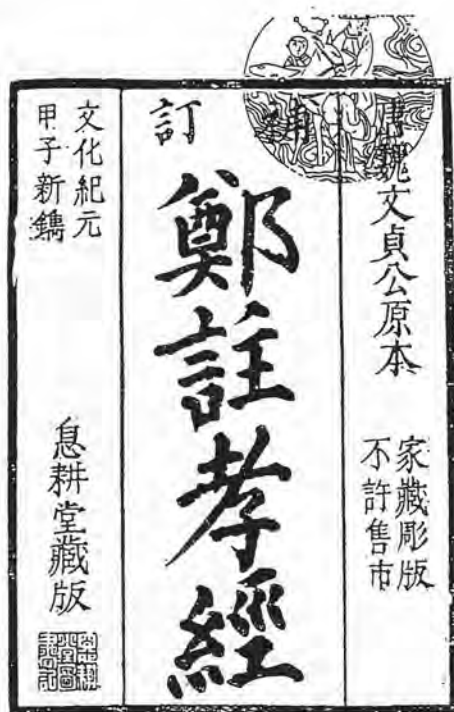 唐魏文貞公原本
家藏彫版
不許售市
補訂
鄭註孝經
文化紀元
甲子新鐫
息耕堂藏版